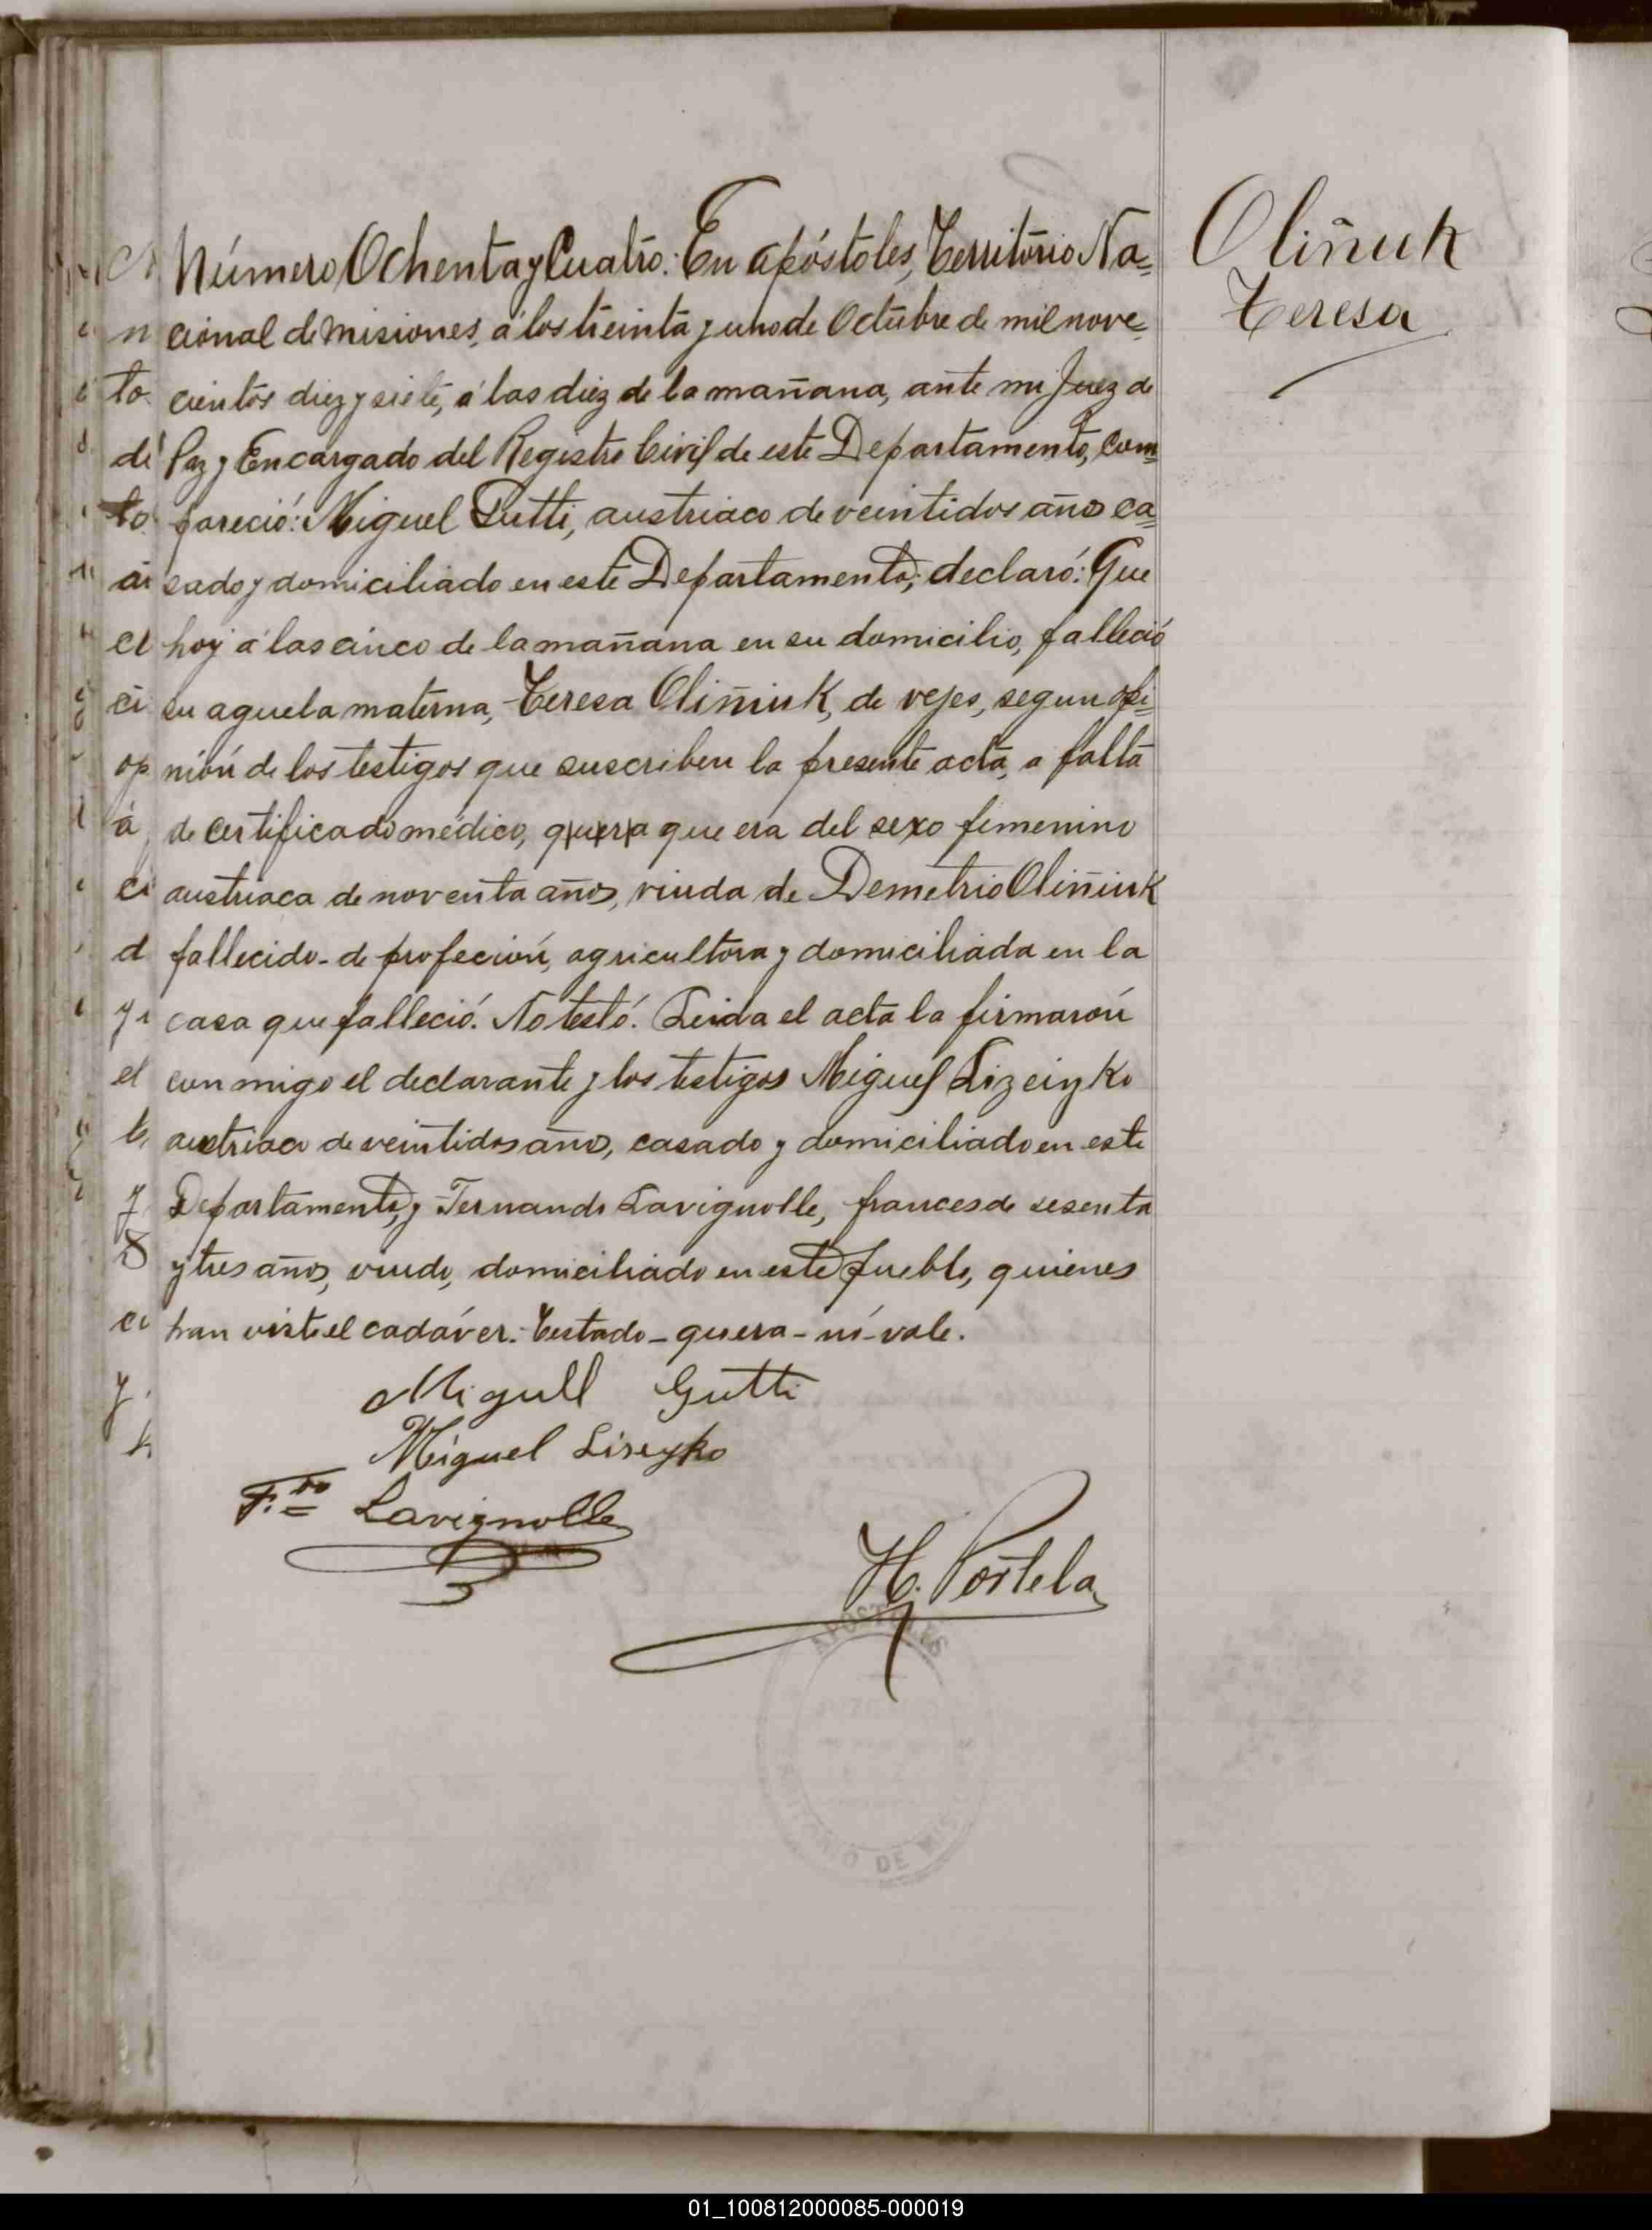 Número Ochenta y Cuatro: En Apóstoles, Territorio Na=
cional de Misiones, á los treinta y uno de Octubre de mil nove=
cientos diez y siete, á las diez de la mañana, ante mi Juez de
Paz y Encargado del Registro Civil de este Departamento, com=
pareció: Miguel Gutti, austriaco de veintidos años ca=
sado y domiciliado en este Departamento; declaró: Que
hoy á las cinco de la mañana en su domicilio, falleció
su aguela materna, Teresa Oliñiuk, de vejes, segun opi=
nión de los testigos que suscriben la presente acta, a falta
de certificado médico, quera que era del sexo femenino
austriaca de noventa años, viuda de Demetrio Oliñiuk
fallecido - de profeción, agricultora y domiciliada en la
casa que falleció. No testó. Leida el acta la firmarón
conmigo el declarante y los testigos Miguel Lizeiyko
austriaco de veintidos años, casado y domiciliado en este
Departamento, y Fernando Lavignolle, frances de sesenta
y tres años, viudo, domiciliado en este pueblo, quienes
han visto el cadáver. - Testado - quera - nó - vale.
Migull Gutti
Miguel Liseyko
F.do Lavignolle
H. Portela
APOSTOLES
DE MIS
Oliñuk
Teresa
01_100812000085-000019